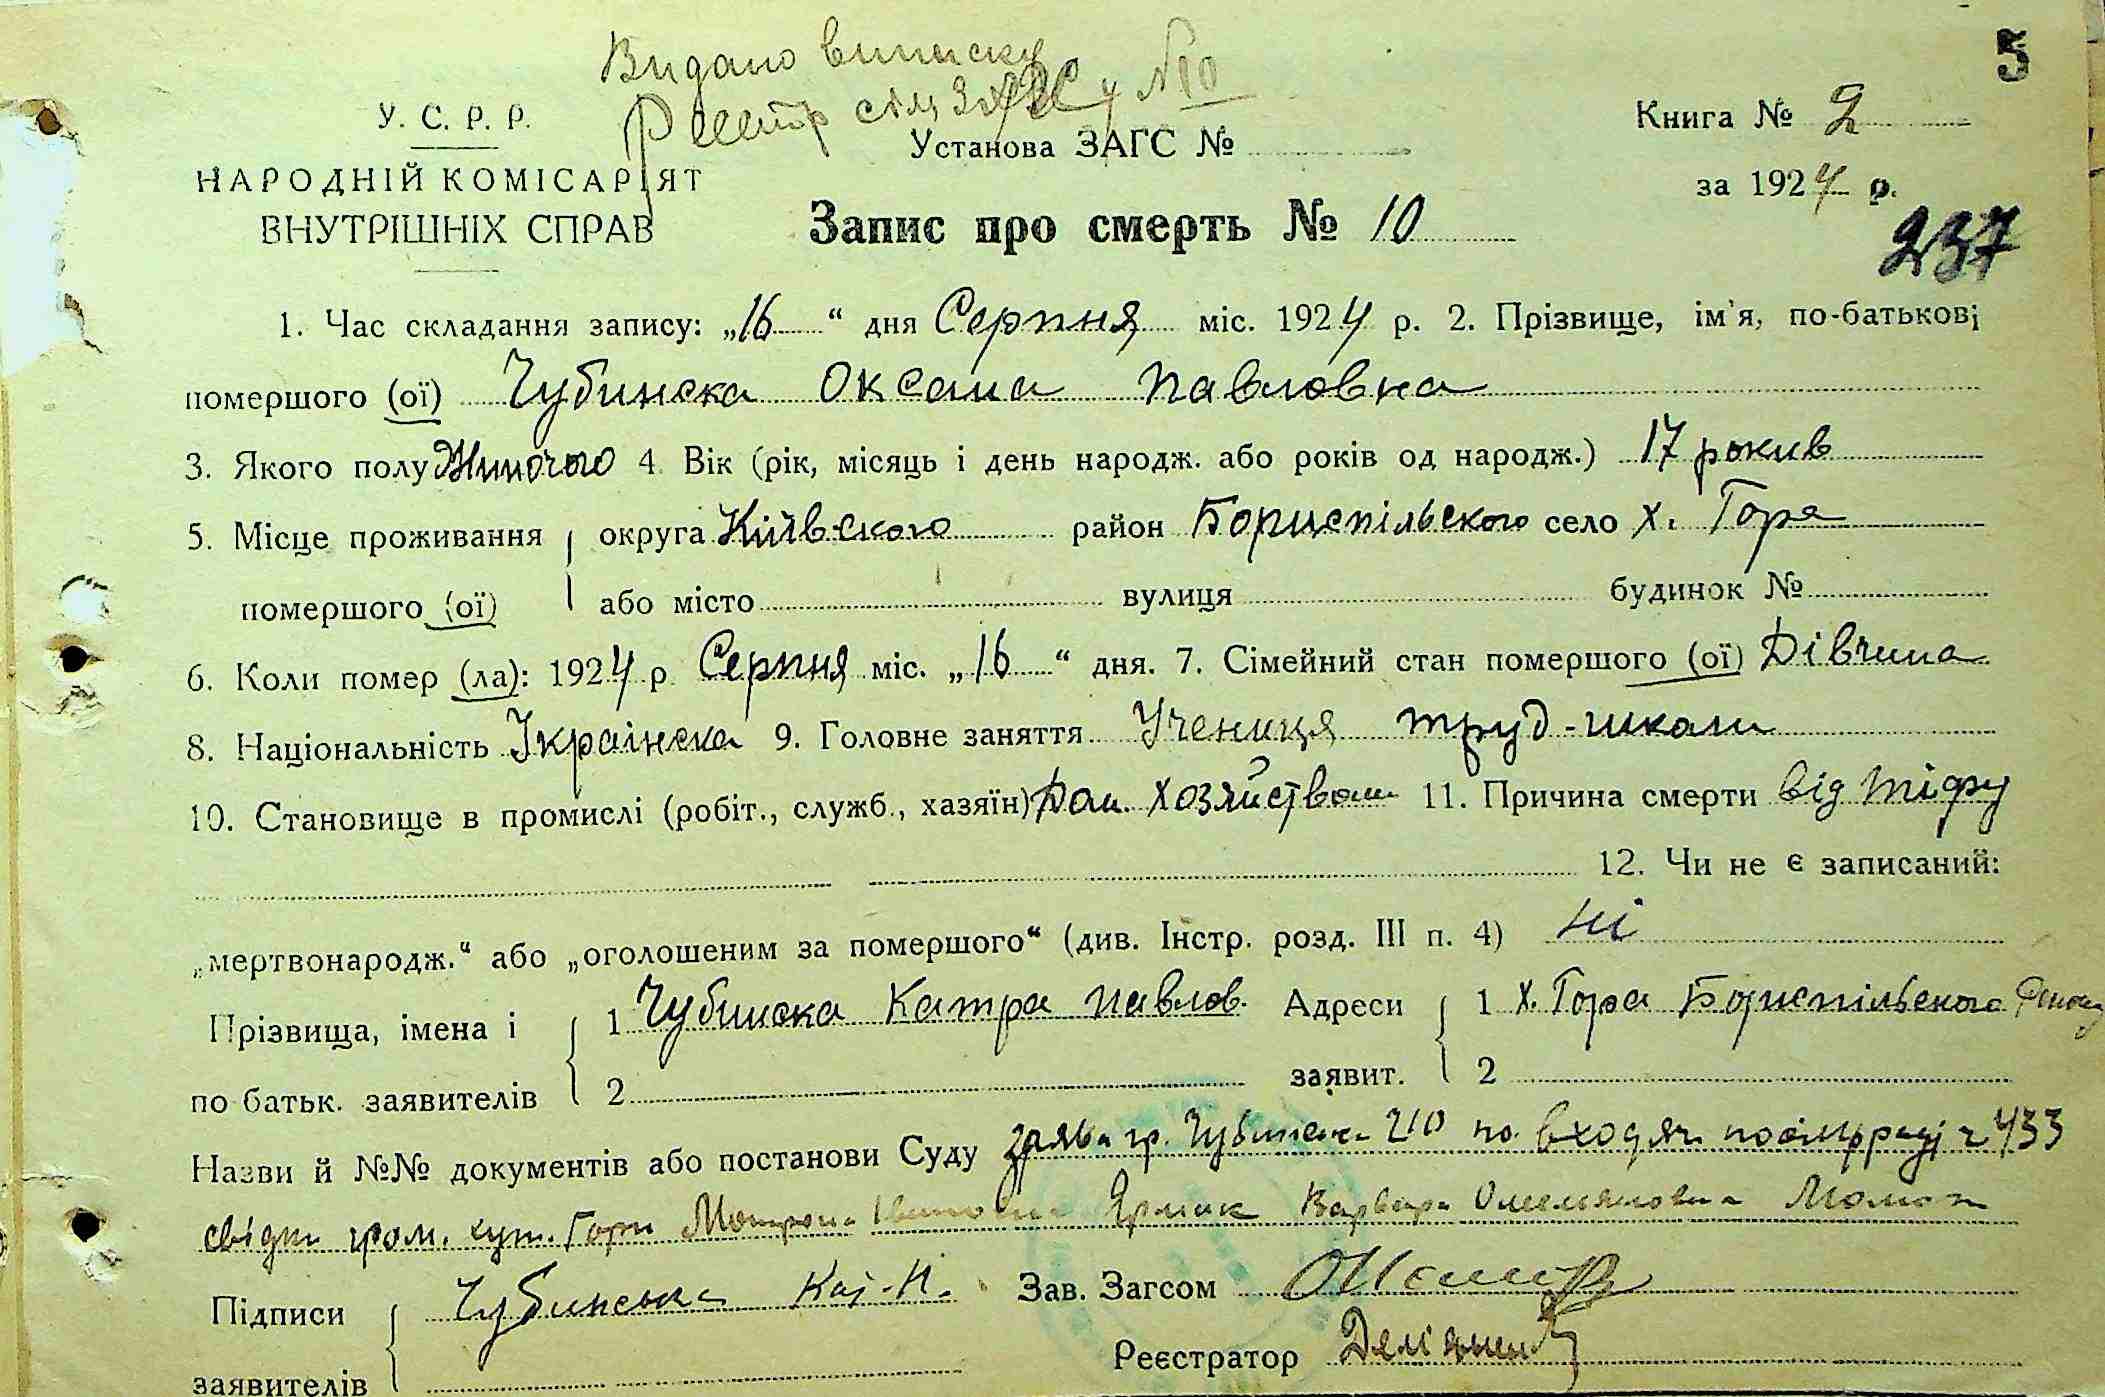 5
Видано виписку
Реєстр сіл ЗАГС у №10
У. С. Р. Р.
Установа ЗАГС №
Книга № 2
НАРОДНІЙ КОМІСАРІЯТ
за 1924 р.
ВНУТРІШНІХ СПРАВ
Запис про смерть № 10
237
1. Час складання запису: „16“ дня Серпня міс. 1924 р. 2. Прізвище, ім'я, по-батькові
помершого (ої) Чубинска Оксана Павловна
3. Якого полу Жиночого 4. Вік (рік, місяць і день народж. або років од народж.) 17 рокив
5. Місце проживання округа Київского район Бориспільского село х. Гора
помершого (ої) або місто вулиця будинок №
6. Коли помер (ла): 1924 р. Серпня міс. „16“ дня. 7. Сімейний стан помершого (ої) Дівчина
8. Національність Українска 9. Головне заняття Учениця труд-школи
10. Становище в промислі (робіт., служб., хазяїн) Дом. хозяйством 11. Причина смерти від тіфу
12. Чи не є записаний:
„мертвонародж.“ або „оголошеним за помершого“ (див. Інстр. розд. III п. 4) Ні
Прізвища, імена і 1 Чубинска Катра Павлов. Адреси 1 х. Гора Бориспільского
по батьк. заявителів 2 заявит. 2
Назви й №№ документів або постанови Суду заява гр. Чубинська по входяч. 433
свідки гром. хут. Гори Мотрона Івановна Ярмак Варвара Омеляновна
Підписи Чубинська Кат. П. Зав. Загсом
заявителів Реєстратор